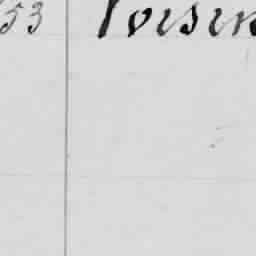 53 Voisin